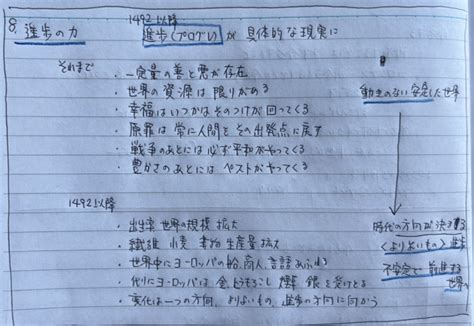 1492以降
8. 進歩の力 進歩(プログレ)が 具体的な現実に
それまで
・一定量の善と悪が存在
・世界の資源は限りがある
動きのない安定した世界
・幸福はいつかはそのつけが回ってくる
・原罪は常に人間をその出発点に戻す
・戦争のあとには必ず平和がやってくる
・豊かさのあとにはペストがやってくる
1492以降
・出生率 世界の規模 拡大
時代の方向が決まる
・繊維 小麦 書物 生産量 拡大
〈よりよいもの〉
・世界中にヨーロッパの船、商人、言語あふれる
不安定で前進する
世界へ
・代りにヨーロッパは 金、とうもろこし 煙草 銀を受けとる
・変化は一つの方向、よりよいもの、進歩の方向に向かう